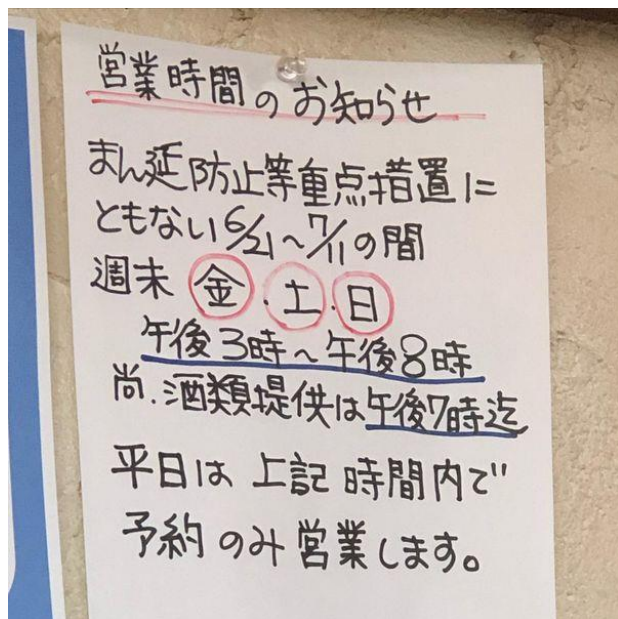 営業時間のお知らせ
まん延防止等重点措置に
ともない6/21～7/11の間
週末 金.土.日
午後3時～午後8時
尚.酒類提供は午後7時迄
平日は上記時間内で
予約のみ営業します。